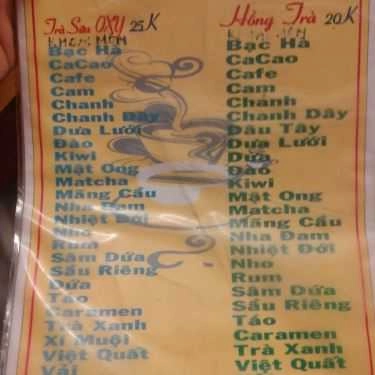 Trà Sâu OXY 25K
Bạc Hà
CaCao
Cafe
Cam
Chanh
Chanh Dây
Dưa Lưới
Đào
Kiwi
Mật Ong
Matcha
Mãng Cầu
Nha Đam
Nhiệt Đới
Nho
Rum
Sâm Dứa
Sầu Riêng
Dứa
Táo
Caramen
Trà Xanh
Xí Muội
Việt Quất
Vải
Hồng Trà 20K
Bạc Hà
CaCao
Cafe
Cam
Chanh
Chanh Dây
Dâu Tây
Dưa Lưới
Dứa
Đào
Kiwi
Mật Ong
Matcha
Mãng Cầu
Nha Đam
Nhiệt Đới
Nho
Rum
Sâm Dứa
Sầu Riêng
Táo
Caramen
Trà Xanh
Việt Quất